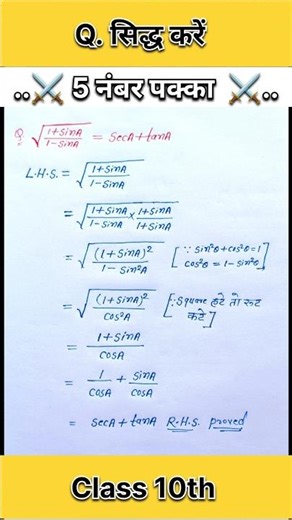 Q. सिद्ध करें
..⚔️ 5 नंबर पक्का ⚔️..
Q. √(1+SinA / 1-SinA) = SecA+tanA
L.H.S. = √(1+SinA / 1-SinA)
= √(1+SinA / 1-SinA × 1+SinA / 1+SinA)
= √((1+SinA)² / 1-Sin²A) [∵ Sin²θ+Cos²θ=1 Cos²θ=1-Sin²θ]
= √((1+SinA)² / Cos²A) [∵ Square हटे तो रूट कटे]
= 1+SinA / CosA
= 1/CosA + SinA/CosA
= SecA+tanA R.H.S. proved
Class 10th